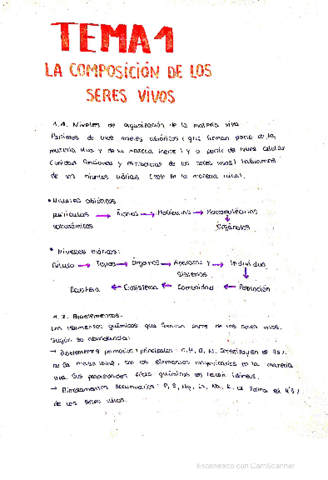 TEMA 1
LA COMPOSICIÓN DE LOS
SERES VIVOS
1.1. Niveles de organización de la materia viva
Partimos de unos niveles abióticos (que forman parte de la
materia viva y de la materia inerte) y a partir de nivel celular
(unidad funcional y estructural de los seres vivos) hablamos
de los niveles bióticos (solo en la materia viva).
• Niveles abióticos
partículas → Átomos → Moléculas → Macromoléculas
subatómicas
Orgánulos
• Niveles bióticos:
Célula → Tejidos → Órganos → Aparatos y → Individuo
Sistemas
Ecosfera ← Ecosistema ← Comunidad ← Población
1.2. Bioelementos.
Los elementos químicos que forman parte de los seres vivos.
Según su abundancia:
→ Bioelementos primarios / principales: C, H, O, N.
de la masa
viva. Sus propiedades
→ Bioelementos secundarios: P, S, Mg, Na, K,
de los seres vivos.
Escaneado con CamScanner